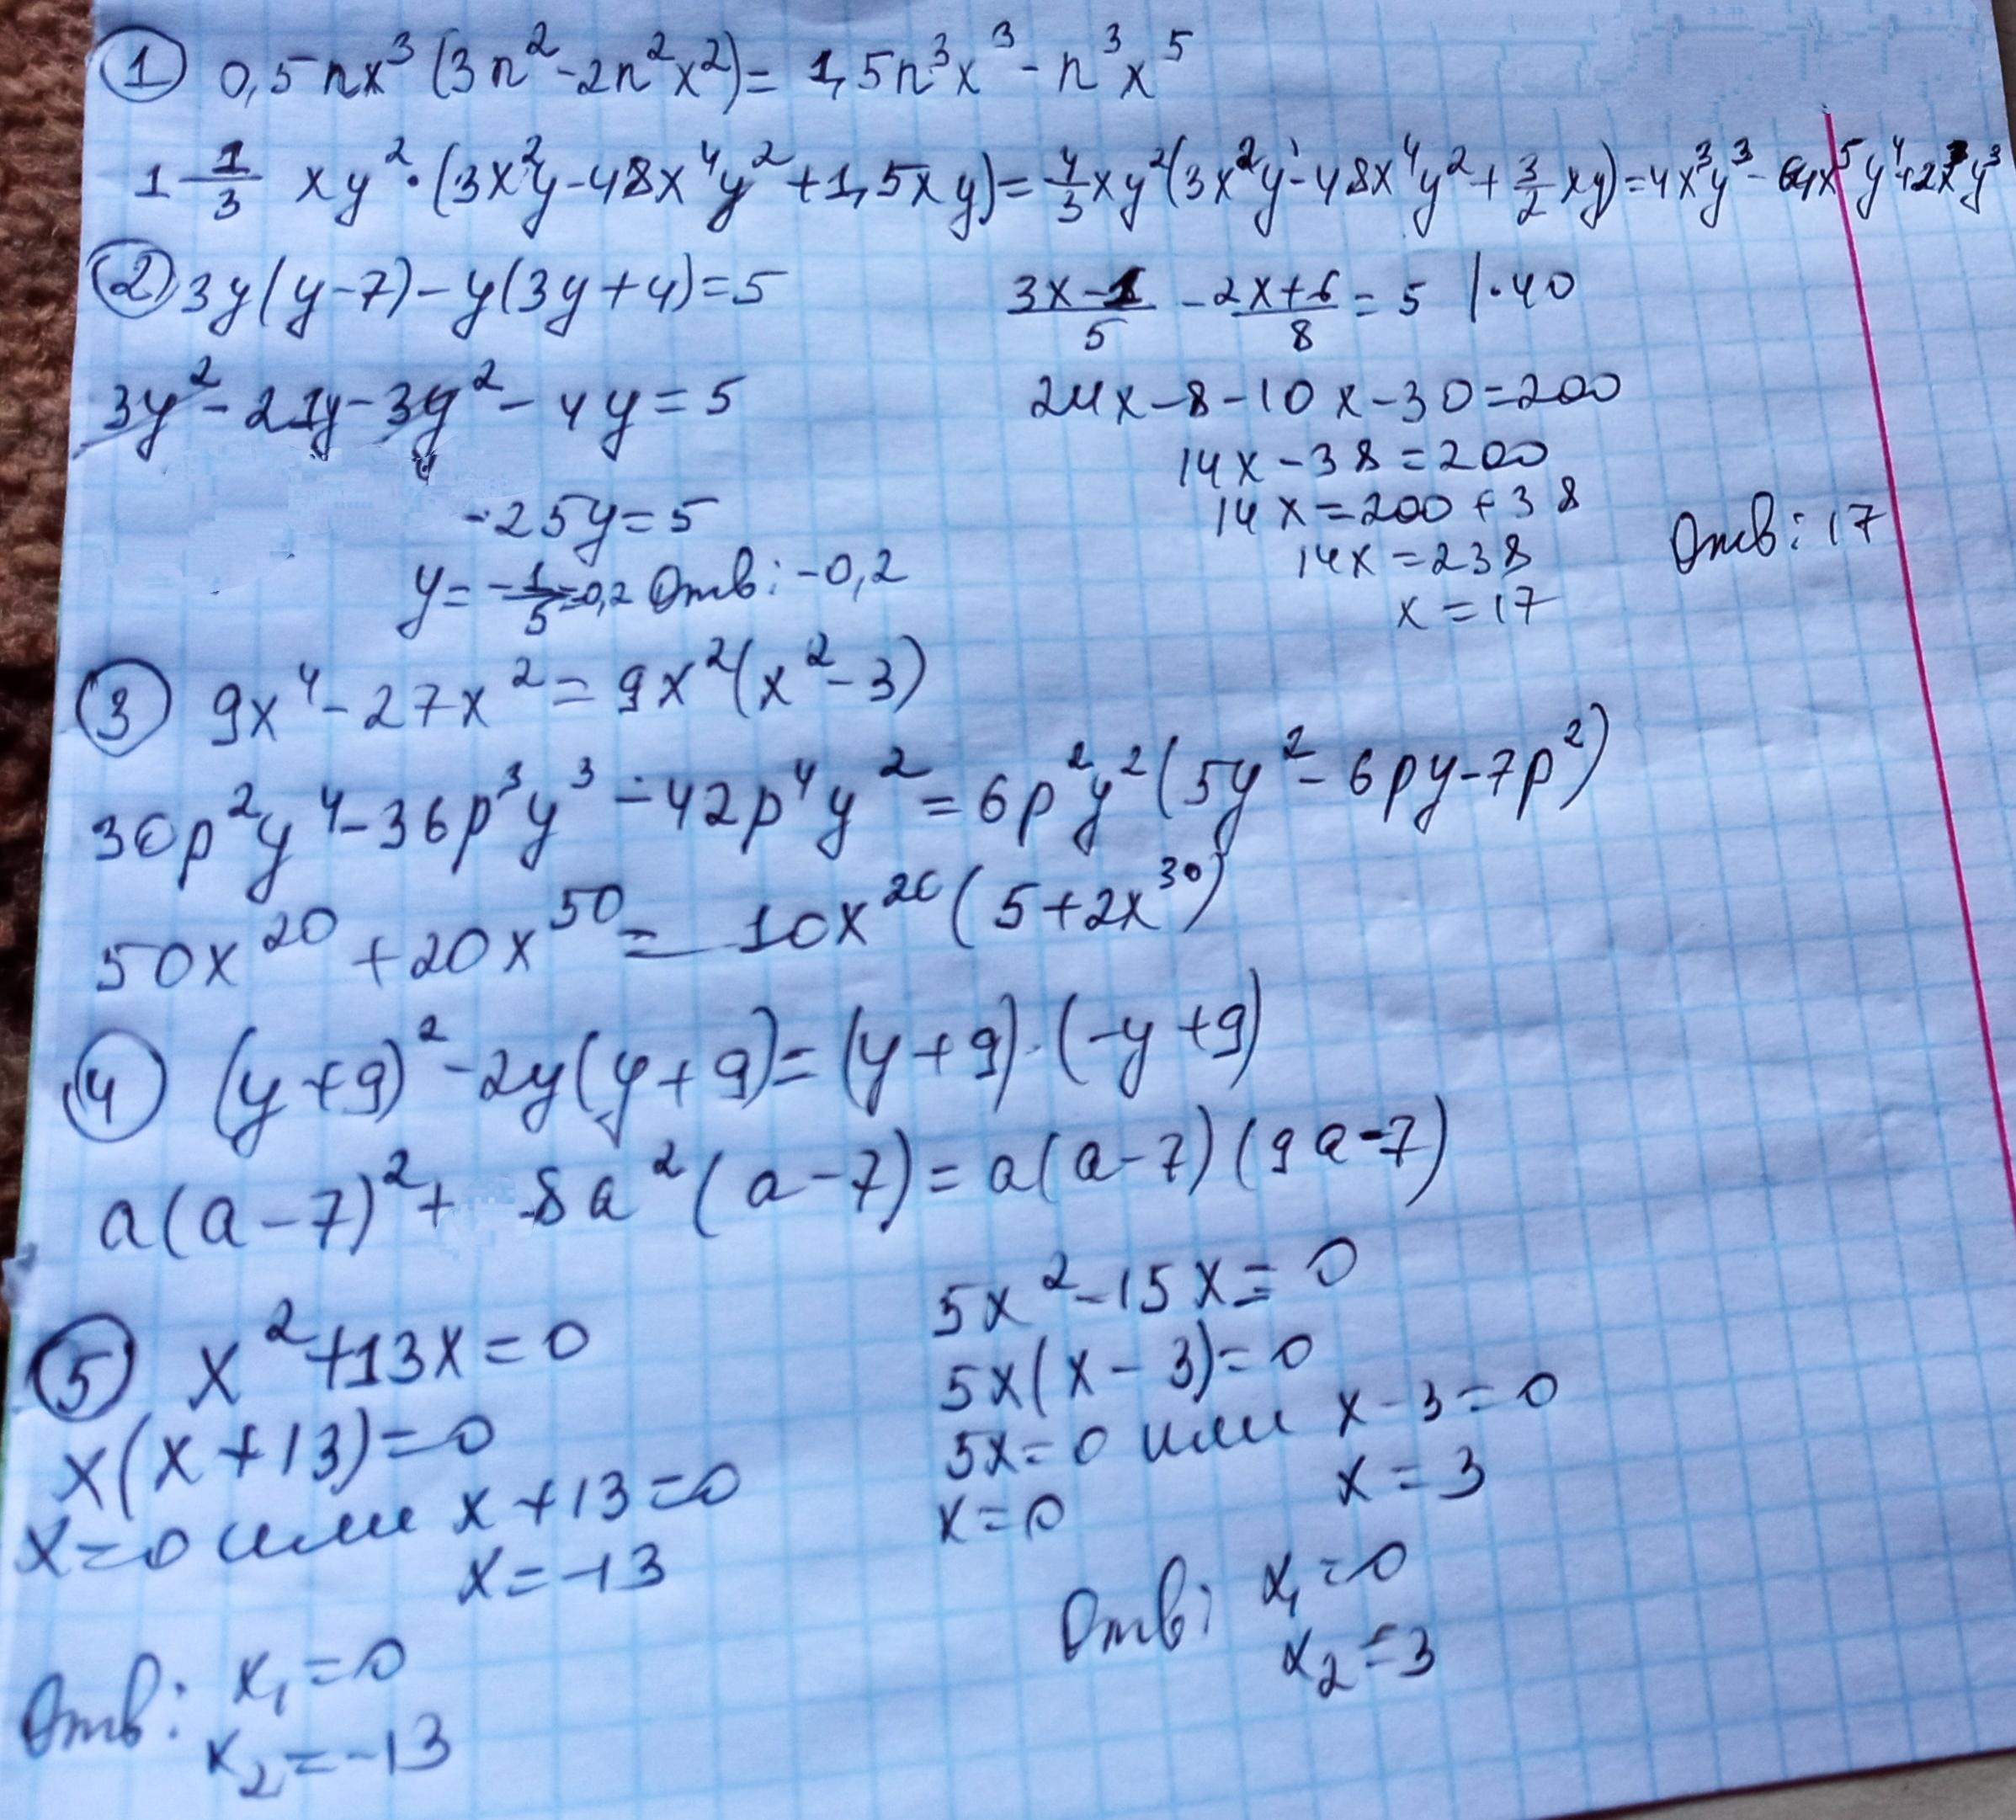 ① 0,5nx³(3n²-2n²x²)=1,5n³x³-n³x⁵
1 1/3 xy²·(3x²y-48x⁴y²+1,5xy)=4/3xy²(3x²y-48x⁴y²+3/2xy)=4x³y³-64x⁵y⁴+2x²y³
② 3y(y-7)-y(3y+4)=5
3y²-21y-3y²-4y=5
-25y=5
y=-1/5=-0,2 Отв: -0,2
(3x-1)/5 - (2x+6)/8 = 5 |·40
24x-8-10x-30=200
14x-38=200
14x=200+38
14x=238
x=17
Отв: 17
③ 9x⁴-27x²=9x²(x²-3)
30p²y⁴-36p³y³-42p⁴y²=6p²y²(5y²-6py-7p²)
50x²⁰+20x⁵⁰=10x²⁰(5+2x³⁰)
④ (y+9)²-2y(y+9)=(y+9)·(-y+9)
a(a-7)²+8a²(a-7)=a(a-7)(9a-7)
⑤ x²+13x=0
x(x+13)=0
x=0 или x+13=0
x=-13
Отв: x₁=0
x₂=-13
5x²-15x=0
5x(x-3)=0
5x=0 или x-3=0
x=0 x=3
Отв: x₁=0
x₂=3